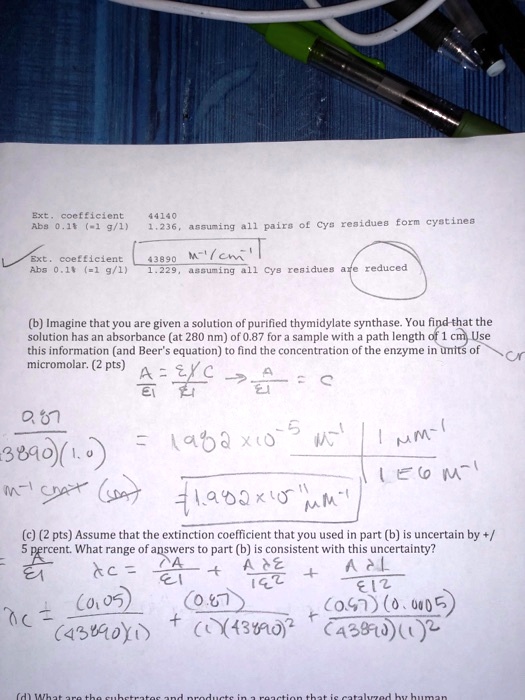 Ext. coefficient 44140
Abs 0.1% (=1 g/l) 1.236, assuming all pairs of Cys residues form cystines
Ext. coefficient 43890 M⁻¹/cm⁻¹
Abs 0.1% (=1 g/l) 1.229, assuming all Cys residues are reduced
(b) Imagine that you are given a solution of purified thymidylate synthase. You find that the
solution has an absorbance (at 280 nm) of 0.87 for a sample with a path length of 1 cm. Use
this information (and Beer's equation) to find the concentration of the enzyme in units of
micromolar. (2 pts)
A = εlC → A/εl = C
0.87
3890)(1.0) = 1.982 x10⁻⁵ M⁻¹ | 1 μM⁻¹
M⁻¹ cm⁻¹ (cm) | 1E6 M⁻¹
1.982x10⁻¹¹ μM⁻¹
(c) (2 pts) Assume that the extinction coefficient that you used in part (b) is uncertain by +/
5 percent. What range of answers to part (b) is consistent with this uncertainty?
= A/εl λC = λA/εl + Aλε/lε² + Aλl/εl²
λC = (0.05)/(43890)(1) + (0.87)/(1)(43890)² + (0.87)(0.0005)/(43890)(1)²
(d) What are the substrates and products in a reaction that is catalyzed by human